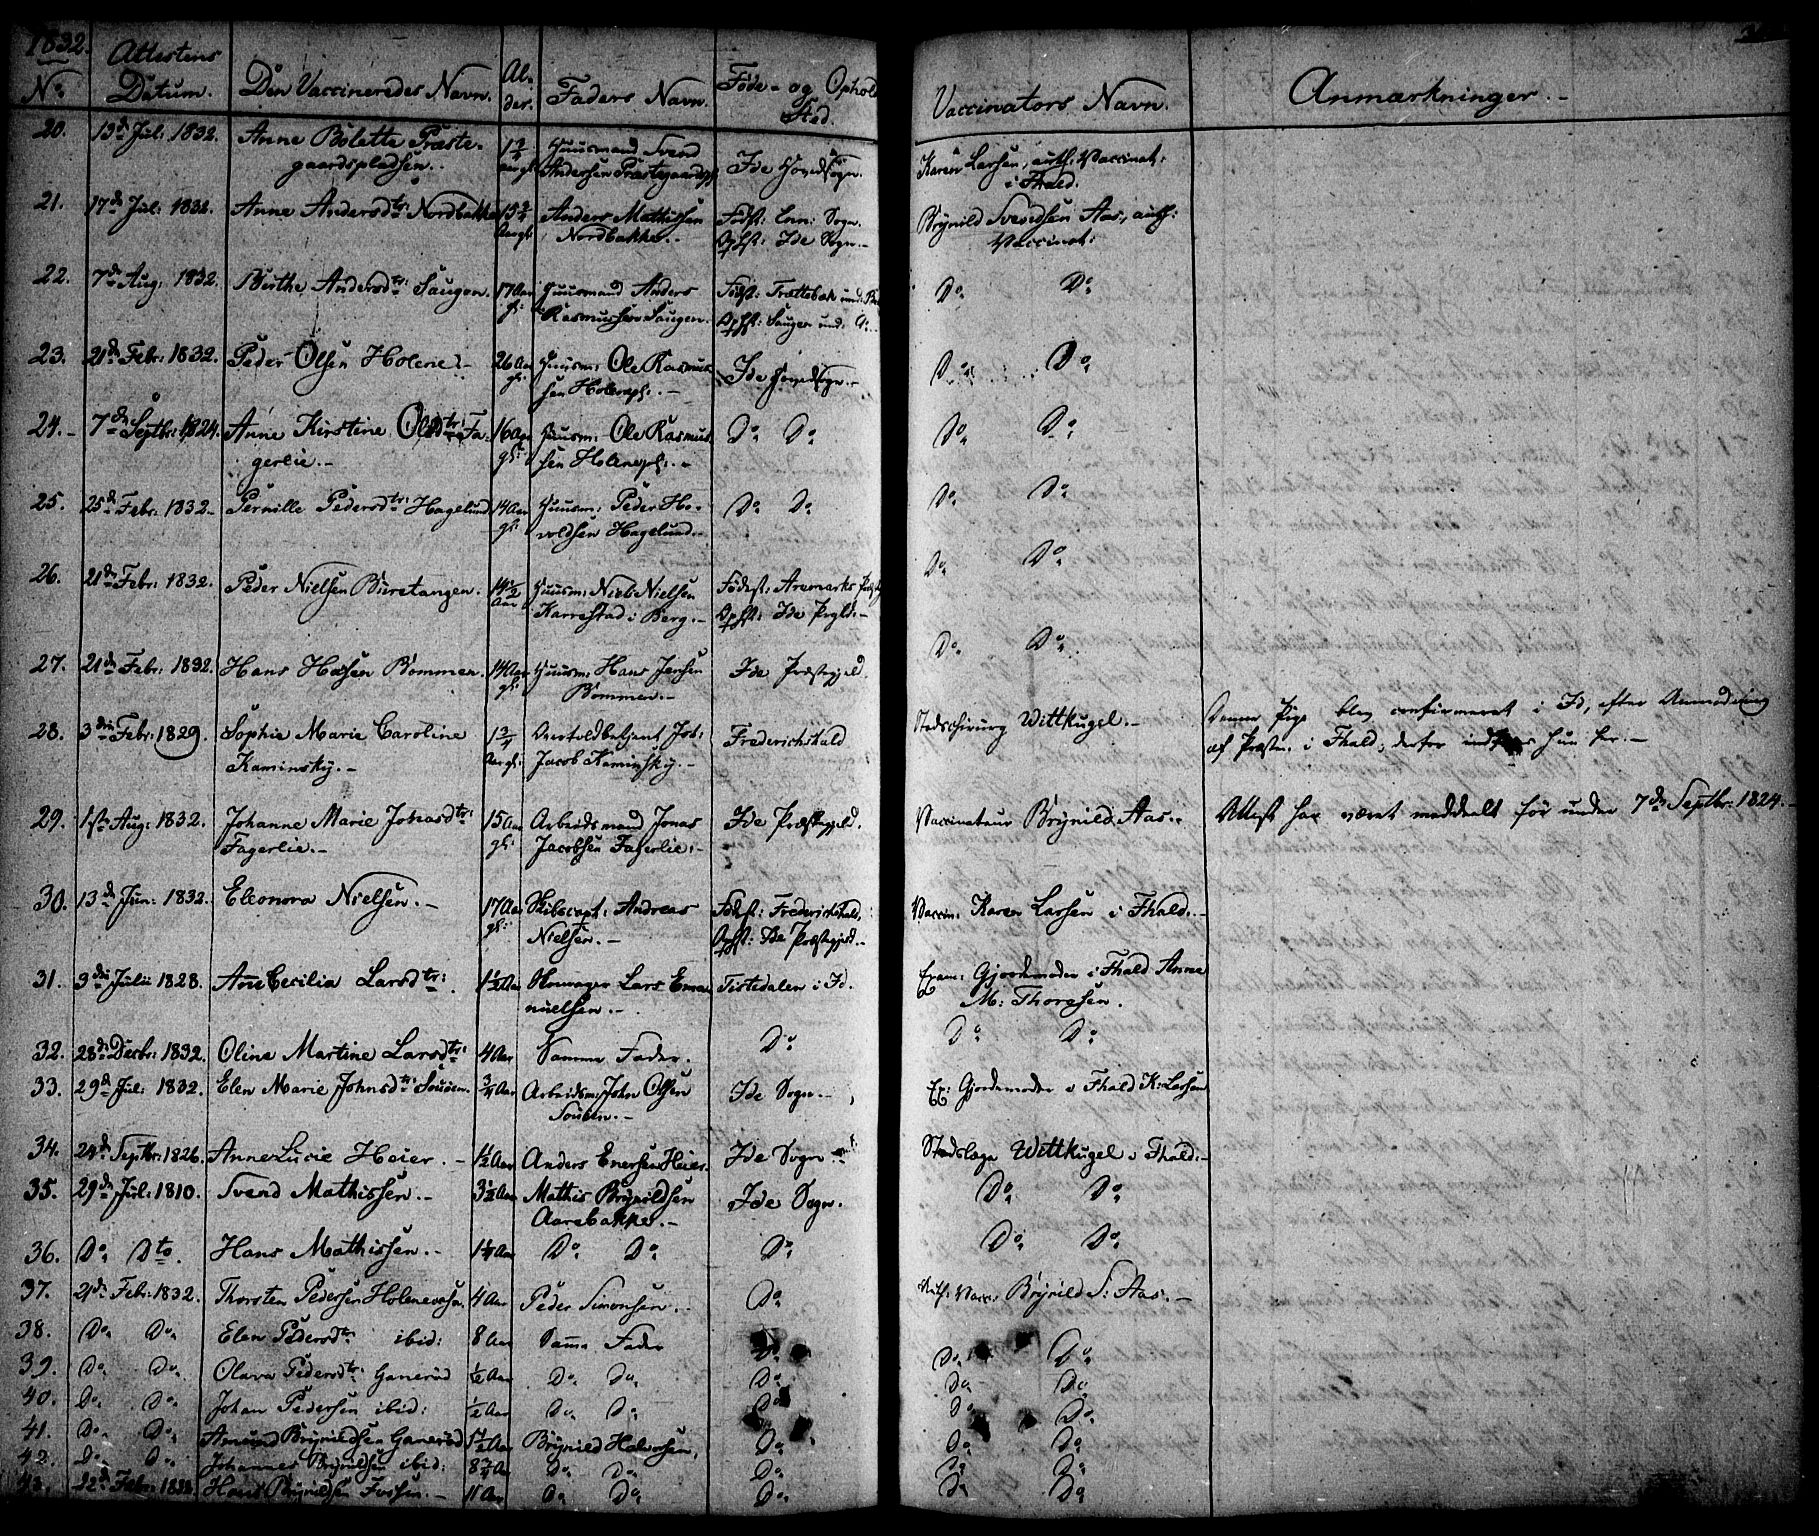 1832.
No.
Attestens Datum.
Den Vaccineredes Navn.
Al-der.
Faders Navn.
Føde- og Ophold Sted.
Vaccinators Navn.
Anmærkninger.-
20. 13de Jul: 1832. Anne Bolette Præste- Huusmand Svend Karen Larsen, auth. Vaccinat:
gaardspladsen.. Andersen Præstegaardspl Ide Hovedsogn. i Fhald.
21. 17de Jul: 1832. Anne Andersdtr: Nordbakke 15 3/4 Anders Mathissen Født: Enn: Sogn. Brynild Svendsen Aas, auth:
Aargl: Nordbakke.- Opst: Ide Sogn.- Vaccinat:
22. 7de Aug: 1832. Birthe Andersdtr: Saugen. 17 Aar Huusmand Anders Født: Trættebak Do. Do.
gl: Rasmussen Saugen. Opst: Saugen
23. 21de Febr: 1832. Peder Olsen Holene.- 26 Aar Huusm: Ole Rasmus- Ide Hovedsogn.- Do. Do.
gl: sen Holenepl:.-
24.- 7de Septbr: 1824. Anne Kirstine Olsdtr: Fa- 16 Aar Huusm: Ole Rasmus- Do. Do. Do. Do.
gerlie.- gl: sen Holenepl:.-
25. 25de Febr: 1832.- Pernille Pedersdtr: Hagelund 14 Aar Huusm: Peder Ho- Do. Do. Do. Do.
gl: voldsen Hagelund.-
26. 21de Febr: 1832. Peder Nielsen Buretangen. 14 1/2 Huusm: Niels Nielsen Født: Aremarks Do. Do.
Aar Karrestad i Berg.- Opst: Ide Prgld:-
27. 21de Febr: 1832. Hans Hansen Bommen. 14 Aar Huusm: Hans Jensen Ide Præstegjeld. Do. Do.
gl: Bommen.-
28. 3die Febr: 1829. Sophie Marie Caroline 1 3/4 Overtoldbetjent Joh: Frederichshald Stadschirurg Wittkugel.- Denne Pige blev confirmeret i Id, efter Anmodning
Kaminsky.- Aargl: Jacob Kaminsky.- af Præsten i Fhald; derfor indføres hun her.-
29. 1ste Aug: 1832. Johanne Marie Jonasdtr: 15 Aar Arbeidsmand Jonas Ide Præstegjeld. Vaccinateur Brynild Aas.. Attest har været meddeelt før under 7de Septbr: 1824.-
Fagerlie.- gl: Jacobsen Fagerlie.-
30. 13de Jun: 1832. Eleonora Nielsen.- 17 Aar Skibscapt: Andreas Født: Frederichshald. Vaccin: Karen Larsen i Fhald.-
gl: Nielsen.- Opst: Ide Præstegjeld.-
31. 9die Julii 1828. Ane Cecilia Larsdtr: 1 1/2 Aar Lars Ema- Tistedalen i Id. Exam: Gjordemoder i Fhald Anne
nuelsen.- M: Thoresen.
32. 28de Decbr: 1832. Oline Martine Larsdtr: 4 Aar Samme Fader. Do. Do. Do.
33. 29de Jul: 1832. Elen Marie Johnsdtr: Souøen. 3/4 Aar Arbeidsm: John Olsen Ide Sogn.- Ex: Gjordemoder i Fhald K: Larsen
Souøen.-
34. 24de Septbr: 1826. Anne Lucie Heier.- 1 1/2 Aar Anders Enersen Heier. Ide Sogn Stadslæge Wittkugel i Fhald.-
35. 29de Jul: 1810. Svend Mathissen.- 3 1/2 Aar Mathis Brynildsen Ide Sogn. Do. Do.
Aarebakke.-
36. Do. Dto. Hans Mathissen.- 1 1/4 Aar Do. Do. Do. Do. Do.
37. 21de Febr: 1832. Thorsten Pedersen Holenevasen 4 Aar Peder Simonsen.- Do. Auth: Vacc: Brynild S: Aas.-
38. Do. Do. Elen Pedersdtr ibid: 8 Aar Samme Fader Do. Do. Do.
39. Do. Do. Olava Pedersdtr: Ganerød Aar Do. Do. Do. Do. Do.
40. Do. Do. Johan Pedersen ibid: Aar Do. Do. Do. Do. Do.
41. Do. Do. Amund Brynildsen Ganerød Aar Brynild Halvorsen, Do. Do. Do.
42. Do. Do. Johannes Brynildsen ibid: 8 3/4 Aar Do. Do. Do. Do. Do.
43. 22de Febr: 1832 Hans Brynildsen 11 Aar Do. Do. Do. Do. Do.